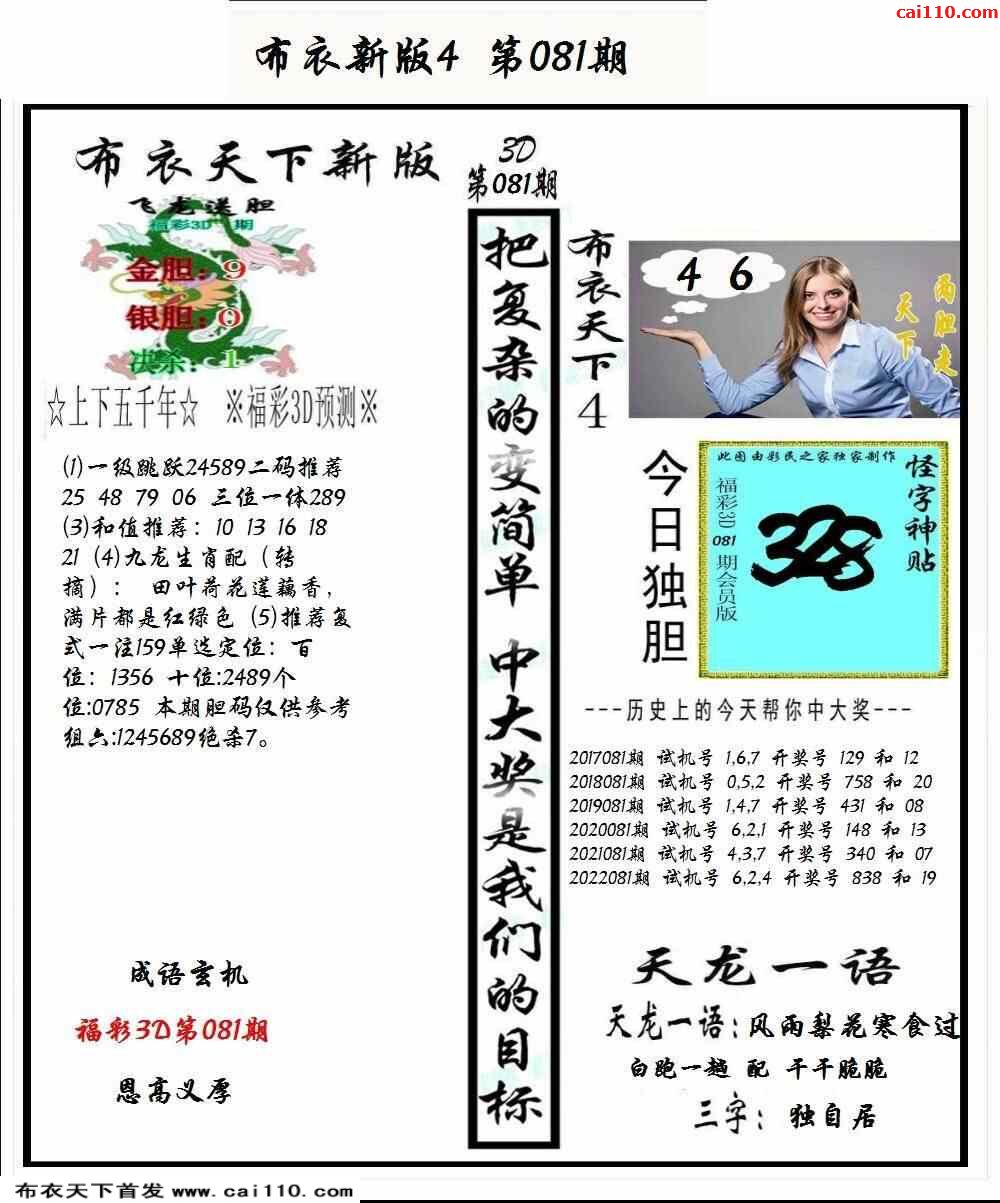 cai110.com
布衣新版4 第081期
布衣天下新版
飞龙送胆
福彩3D 期
金胆：9
银胆：0
决杀：1
☆上下五千年☆ ※福彩3D预测※
(1)一级跳跃24589二码推荐
25 48 79 06 三位一体289
(3)和值推荐：10 13 16 18
21 (4)九龙生肖配（转
摘）： 田叶荷花莲藕香，
满片都是红绿色 (5)推荐复
式一注159单选定位：百
位：1356 十位:2489个
位:0785 本期胆码仅供参考
组六:1245689绝杀7。
成语玄机
福彩3D第081期
恩高义厚
3D
第081期
把复杂的变简单 中大奖是我们的目标
布衣天下4
4 6
两胆走
天下
今日独胆
此图由彩民之家独家制作
怪字神贴
福彩3D 081 期会员版
328
---历史上的今天帮你中大奖---
2017081期 试机号 1,6,7 开奖号 129 和 12
2018081期 试机号 0,5,2 开奖号 758 和 20
2019081期 试机号 1,4,7 开奖号 431 和 08
2020081期 试机号 6,2,1 开奖号 148 和 13
2021081期 试机号 4,3,7 开奖号 340 和 07
2022081期 试机号 6,2,4 开奖号 838 和 19
天龙一语
天龙一语：风雨梨花寒食过
白跑一趟 配 干干脆脆
三字： 独自居
布衣天下首发 www.cai110.com